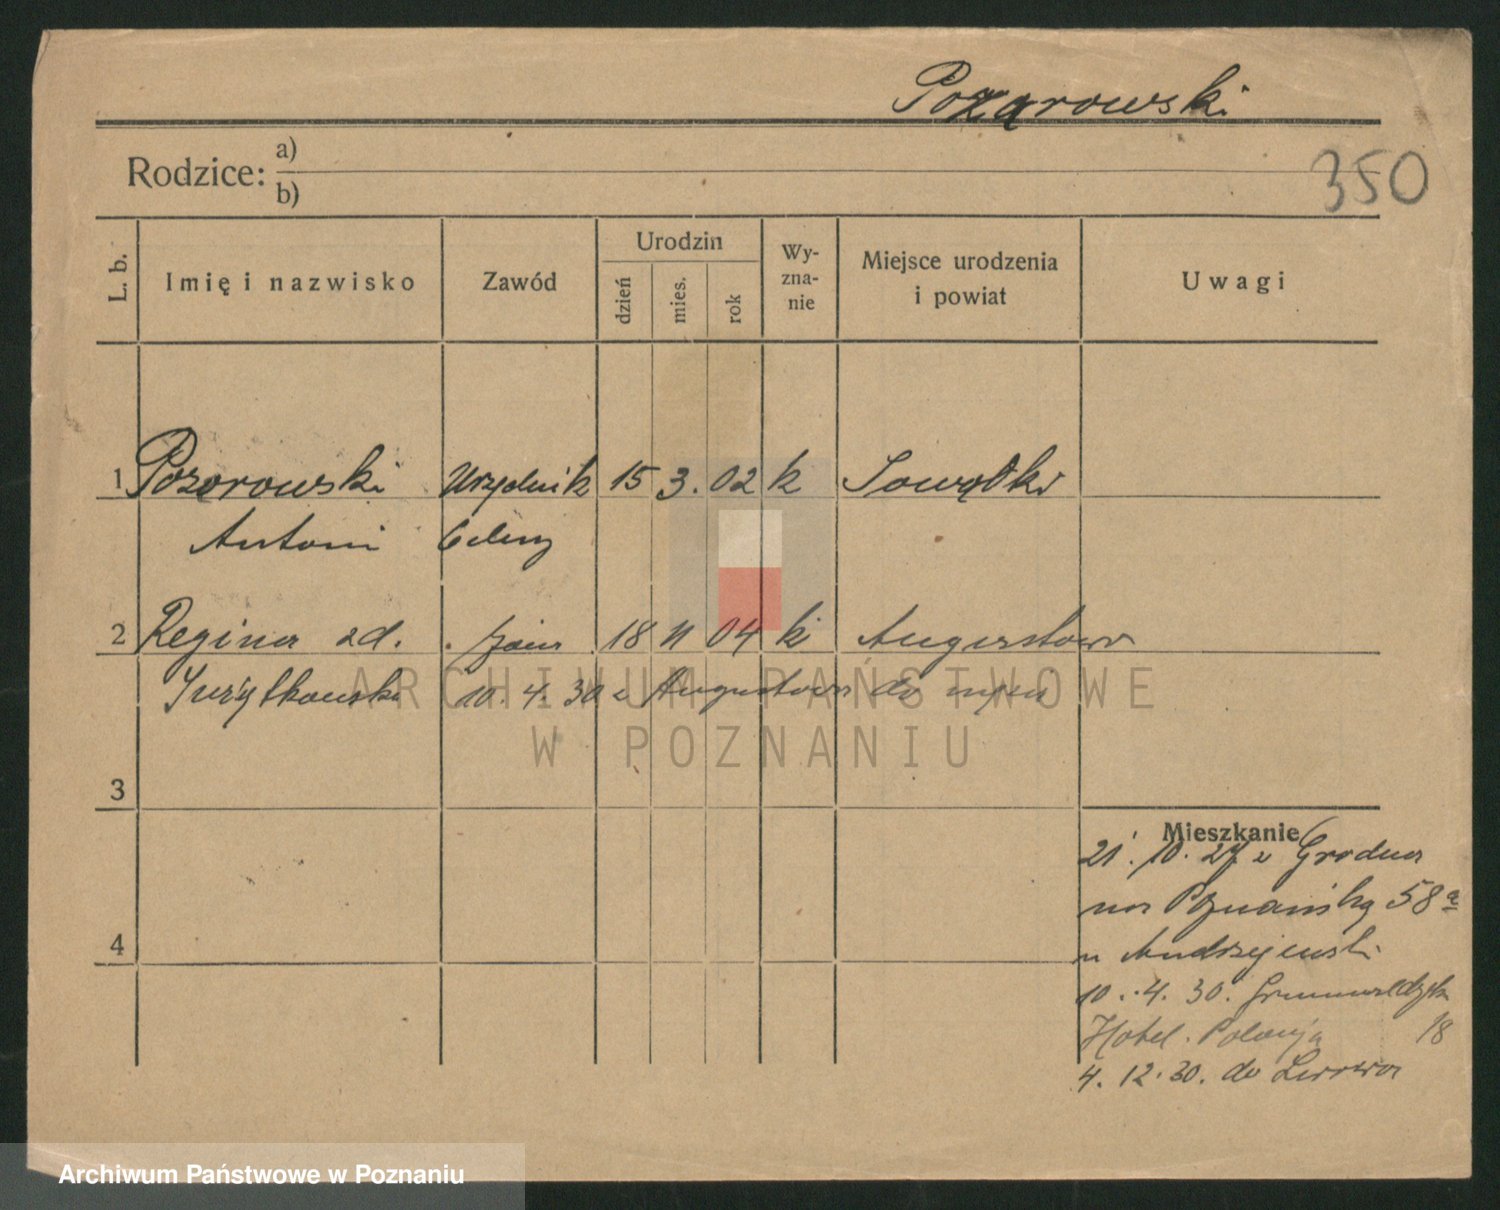 Pozarowski
350
Rodzice: a)
b)
L. b.
Imię i nazwisko
Zawód
Urodzin
dzień
mies.
rok
Wy-
zna-
nie
Miejsce urodzenia
i powiat
Uwagi
1 Pozorowski Urzędnik 15 3. 02 k
Antoni Celny
2 Regina zd. 18 11 04 k Augustowo
10. 4. 30 z Augustowa do męża
3
4
Mieszkanie
21. 10. 27 z Grodna
na Poznańską 58a
u Andrzejewski
10. 4. 30. Grunwaldzka
Hotel. Polonja 18
4. 12. 30. do Lwowa
ARCHIWUM PAŃSTWOWE
W POZNANIU
Archiwum Państwowe w Poznaniu